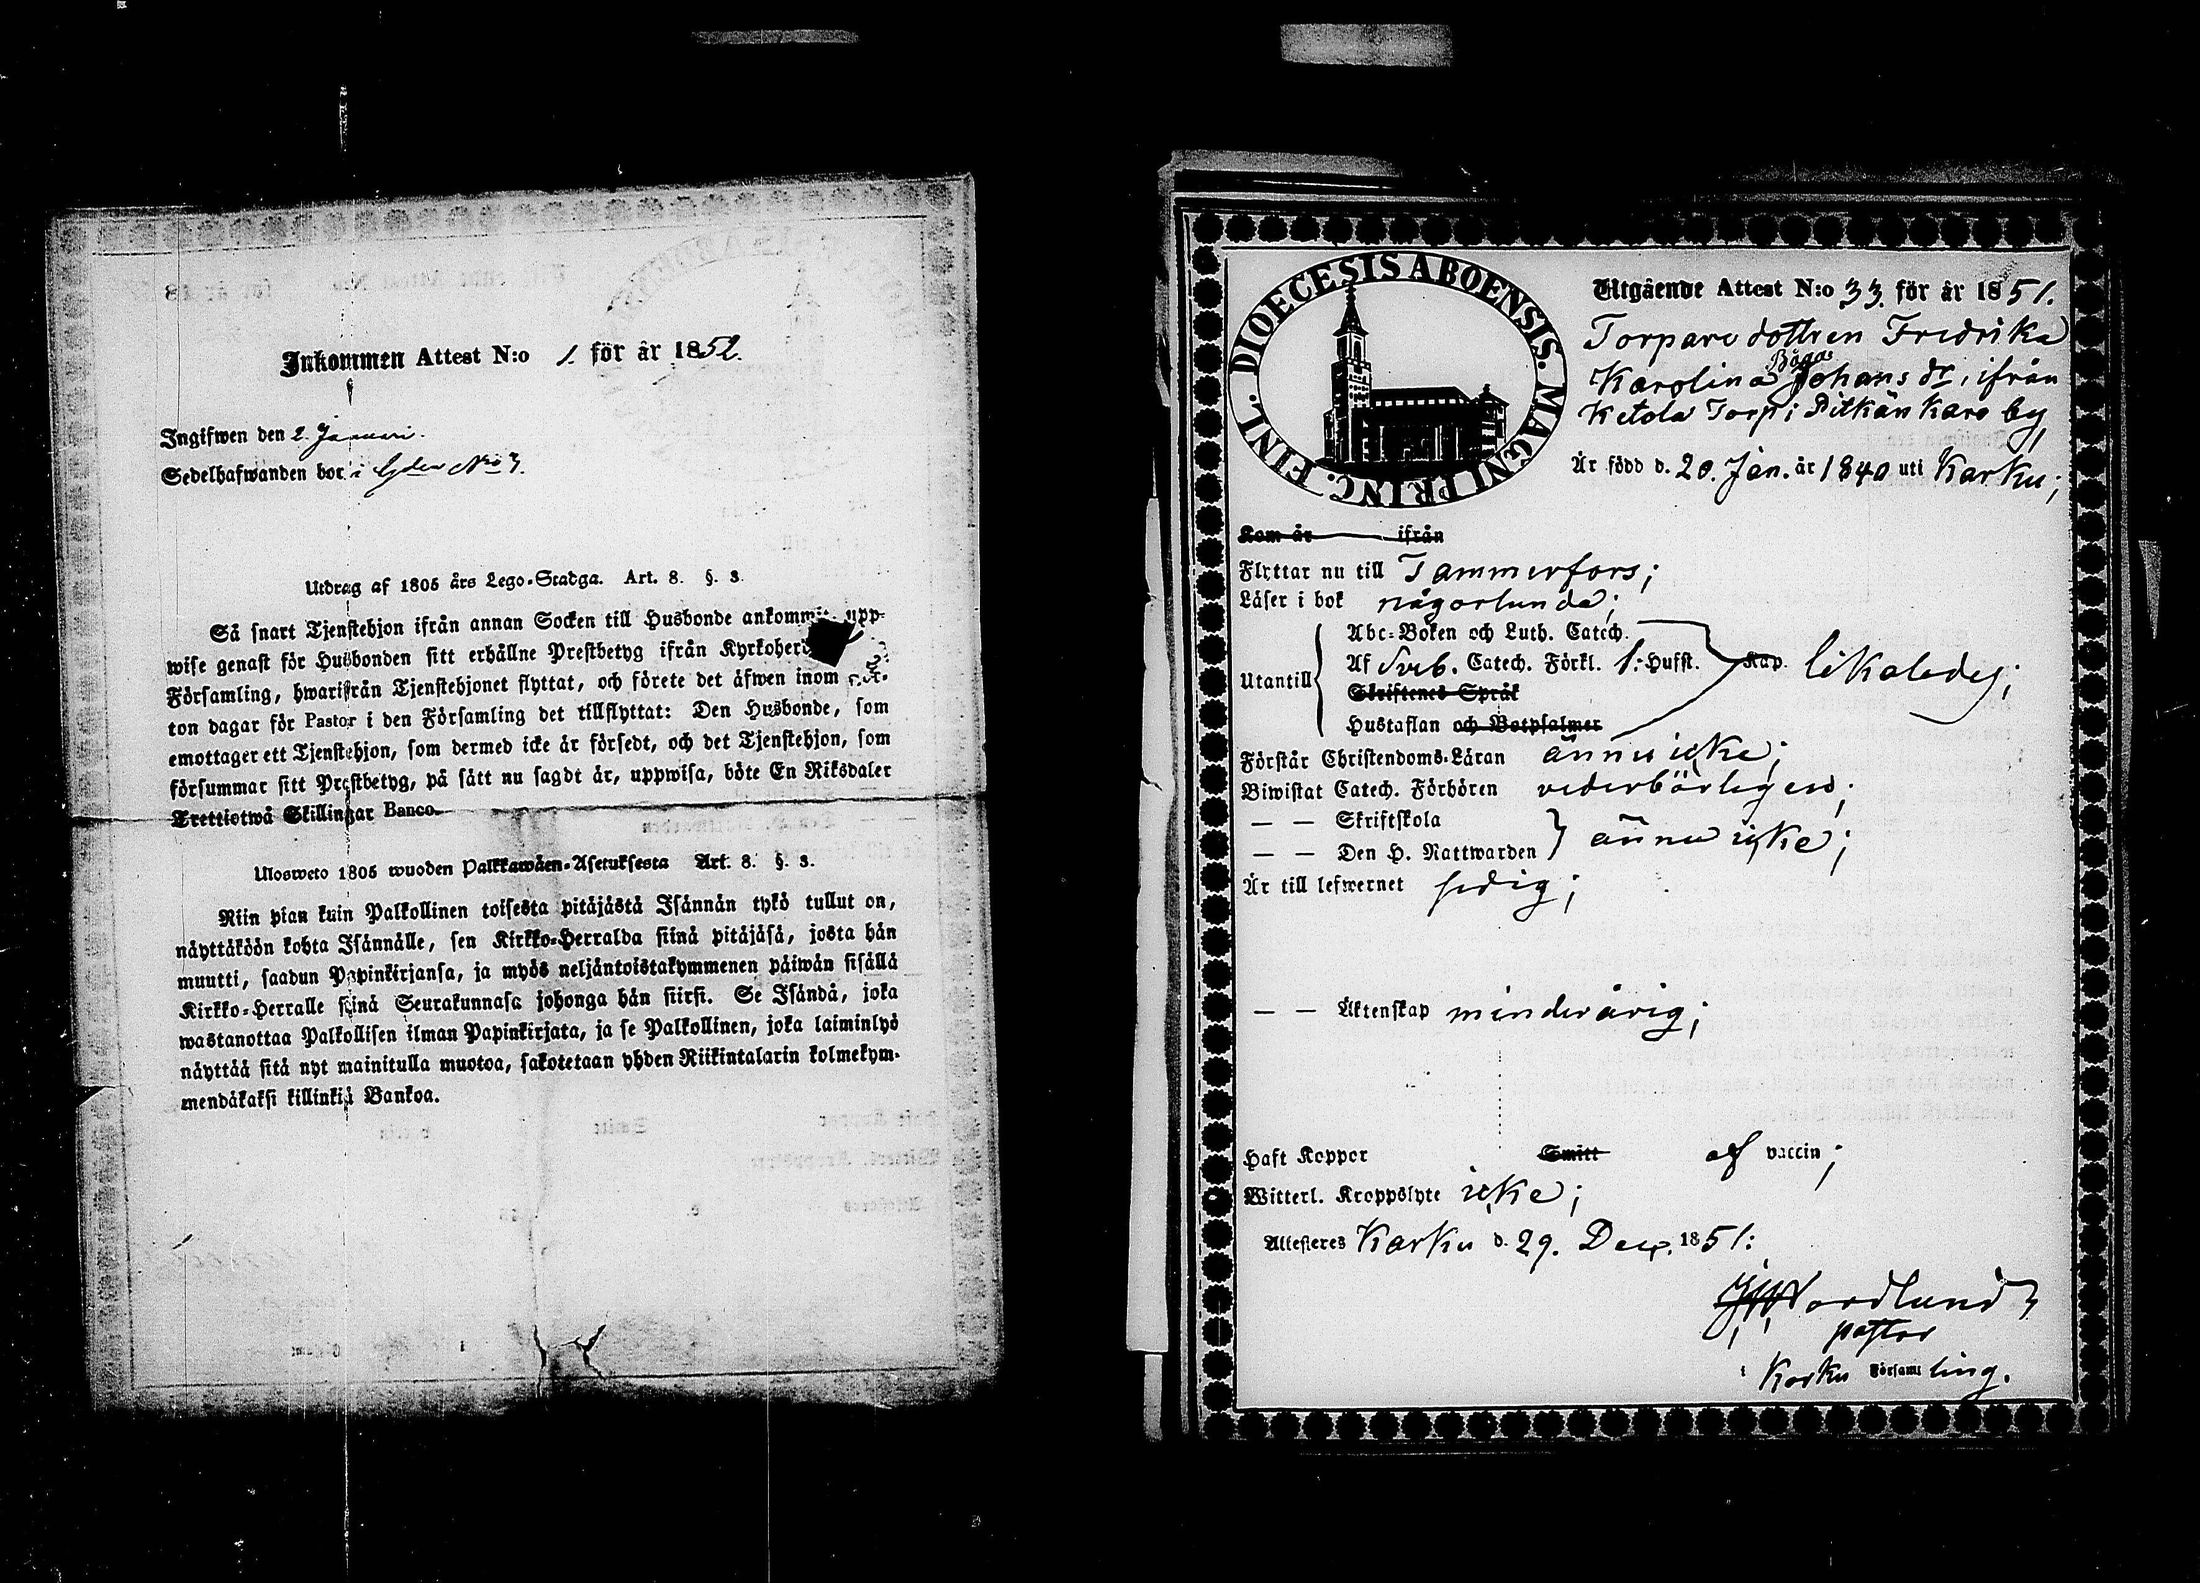 Inkommen Attest N:o 1. för år 1852.
Ingifwen den 2. Januari.
Sedelhafwanden bor i Gden No 7.
Utdrag af 1805 års Lego-Stadga. Art. 8. §. 3.
Så snart Tjenstehjon ifrån annan Socken till Husbonde ankommit, upp-
wise genast för Husbonden sitt erhållne Prestbetyg ifrån
Församling, hwarifrån Tjenstehjonet flyttat, och förete det äfwen inom
ton dagar för Pastor i den Församling det tillflyttat: Den Husbonde, som
emottager ett Tjenstehjon, som dermed icke är försedt, och det Tjenstehjon, som
försummar sitt Prestbetyg, på sätt nu sagdt är, uppwisa, böte En Riksdaler
Trettiotwå Skillingar Banco.
Ulosweto 1805 wuoden Palkkawäen-Asetuksesta Art. 8. §. 3.
Niin pian kuin Palkollinen toisesta pitäjästä Isännän tykö tullut on,
näyttäköön kohta Isännälle, sen Kirkko-Herralda siinä pitäjäsä, josta hän
muutti, saadun Papinkirjansa, ja myös neljäntoistakymmenen päiwän sisällä
Kirkko-Herralle siinä Seurakunnasa johonga hän siirsi. Se Isändä, joka
wastanottaa Palkollisen ilman Papinkirjata, ja se Palkollinen, joka laiminlyö
näyttää sitä nyt mainitulla muotoa, sakotetaan yhden Riikintalarin kolmekym-
mendäkaksi killinkiä Bankoa.
DIOECESIS ABOENSIS. MAGNI PRINC. FINL.
Utgående Attest N:o 33. för år 1851.
Torpare dottren Fredrika
Karolina Johans dr, ifrån
Ketola Torp i Pitkänkare by,
Är född d. 20. Jan. år 1840 uti Karku;
Kom år ifrån
Flyttar nu till Tammerfors;
Läser i bok någorlunda;
Utantill
Abc-Boken och Luth. Catech.
Af Sveb. Catech. Förkl. 1: Hufst. Kap. likaledes;
Skriftenes Språk
Hustaflan och Botpsalmer
Förstår Christendoms-Läran ännu icke;
Biwistat Catech. Förhören vederbörligen;
— — Skriftskola
— — Den H. Nattwarden ännu icke;
Är till lefwernet sedig;
— — Äktenskap minderårig;
Haft Koppor Smitt af vaccin;
Witterl. Kroppslyte icke;
Attesteres Karku d. 29. Dec. 1851:
Nordlund
pastor
i Karku Församling.